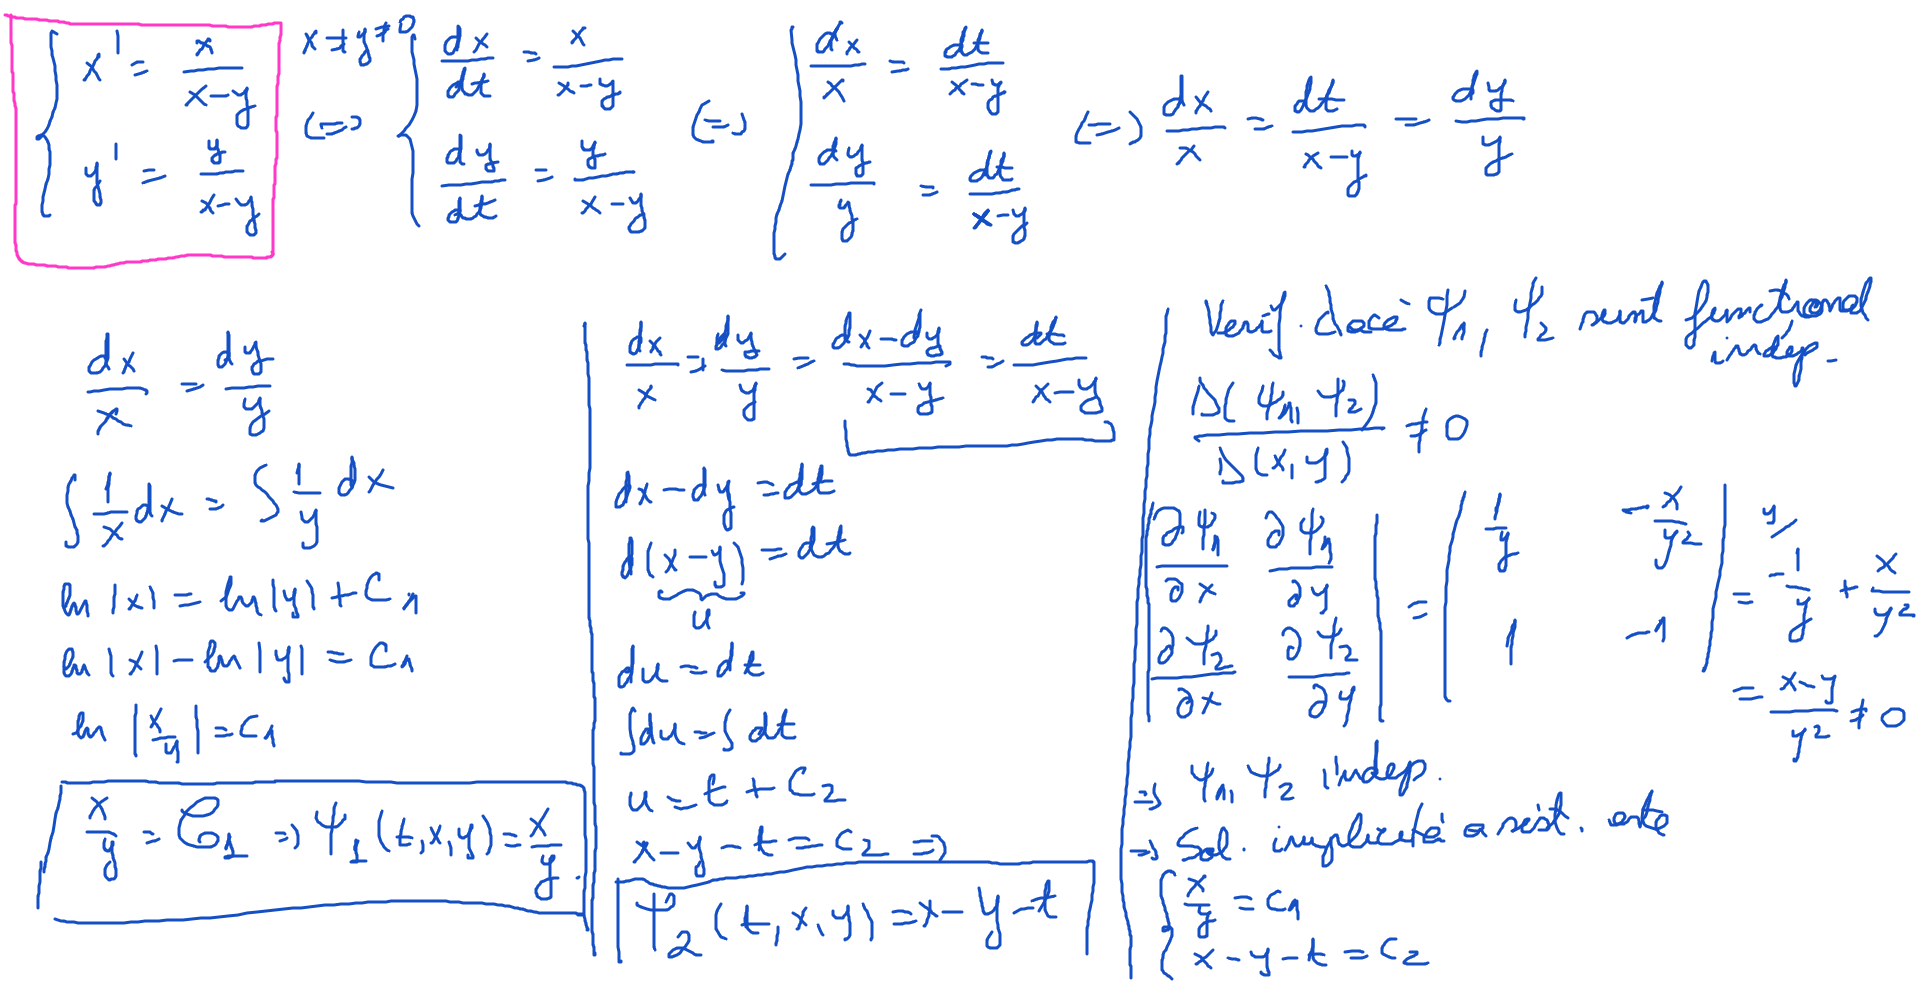 { x' = x/(x-y) , y' = y/(x-y) x≠y≠0 (=) { dx/dt = x/(x-y) , dy/dt = y/(x-y) (=) { dx/x = dt/(x-y) , dy/y = dt/(x-y) (=) dx/x = dt/(x-y) = dy/y
dx/x = dy/y
∫ 1/x dx = ∫ 1/y dx
ln |x| = ln |y| + C1
ln |x| - ln |y| = C1
ln |x/y| = C1
x/y = C1 => Ψ1 (t,x,y) = x/y.
dx/x = dy/y = (dx-dy)/(x-y) = dt/(x-y)
dx - dy = dt
d(x-y) = dt
u
du = dt
∫ du = ∫ dt
u = t + C2
x - y - t = C2 =>
Ψ2 (t,x,y) = x - y - t
Verif. dacă Ψ1, Ψ2 sunt functional
indep.
D(Ψ1, Ψ2)/D(x,y) ≠ 0
| ∂Ψ1/∂x ∂Ψ1/∂y ; ∂Ψ2/∂x ∂Ψ2/∂y | = | 1/y -x/y² ; 1 -1 | = y/ -1/y + x/y²
= (x-y)/y² ≠ 0
=> Ψ1, Ψ2 indep.
=> Sol. implicită a sist. este
{ x/y = C1
x - y - t = C2